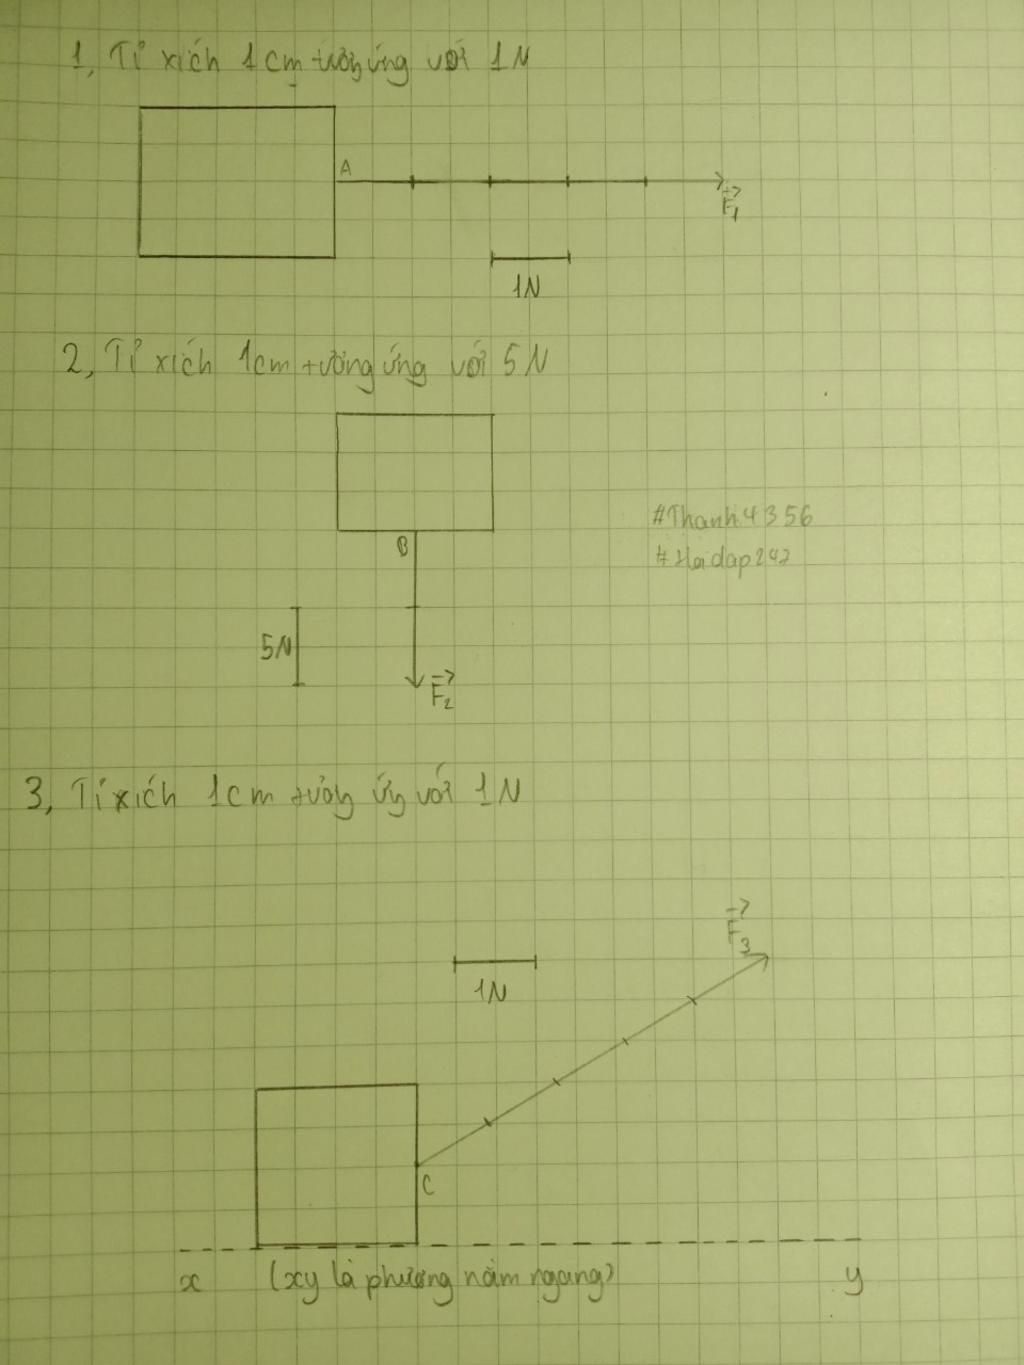 1, Tỉ xích 1cm tương ứng với 1N
A
F₁
1N
2, Tỉ xích 1cm tương ứng với 5N
#Thanh4356
B
#Hoidap247
5N
F₂
3, Tỉ xích 1cm tương ứng với 1N
F₃
1N
C
x (xy là phương nằm ngang) y